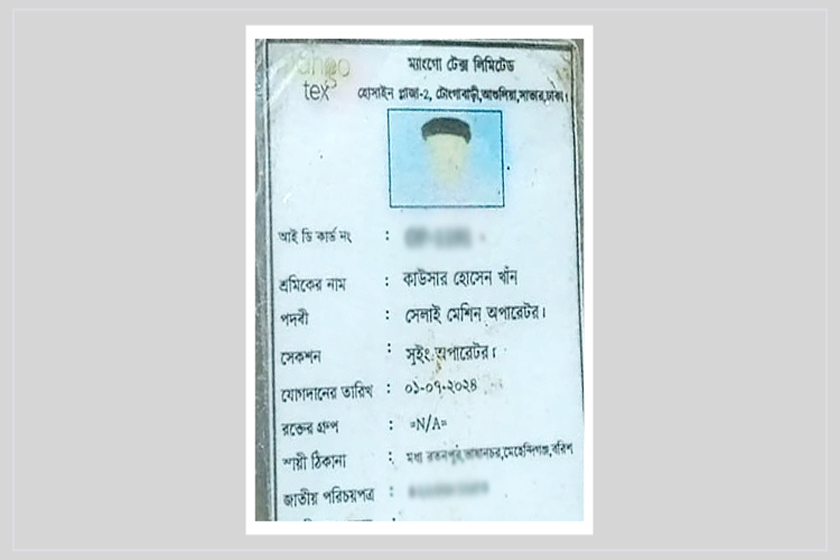 tex
ম্যাংগো টেক্স লিমিটেড
হোসাইন প্লাজা-2, টোংগাবাড়ী,আশুলিয়া,সাভার,ঢাকা।
আই ডি কার্ড নং :
শ্রমিকের নাম : কাউসার হোসেন খাঁন
পদবী : সেলাই মেশিন অপারেটর।
সেকশন : সুইং অপারেটর।
যোগদানের তারিখ : ০১-০৭-২০২৪
রক্তের গ্রুপ : =N/A=
স্থায়ী ঠিকানা : মেহেন্দিগঞ্জ,বরিশ
জাতীয় পরিচয়পত্র :